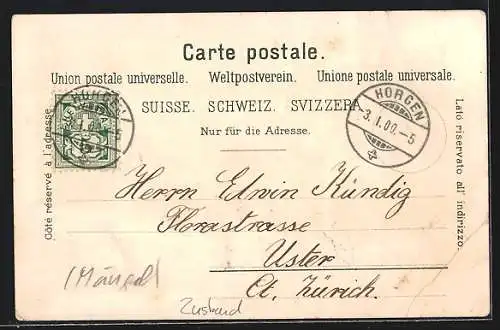 Carte postale.
Union postale universelle. Weltpostverein. Unione postale universale.
SUISSE. SCHWEIZ. SVIZZERA.
Nur für die Adresse.
Côté réservé à l'adresse
Lato riservato all' indirizzo.
HORGEN
HORGEN
3.I.00.-5
Herrn Edwin Kündig
Florastrasse
Uster
Ct. Zürich.
(Mängel)
Zustand